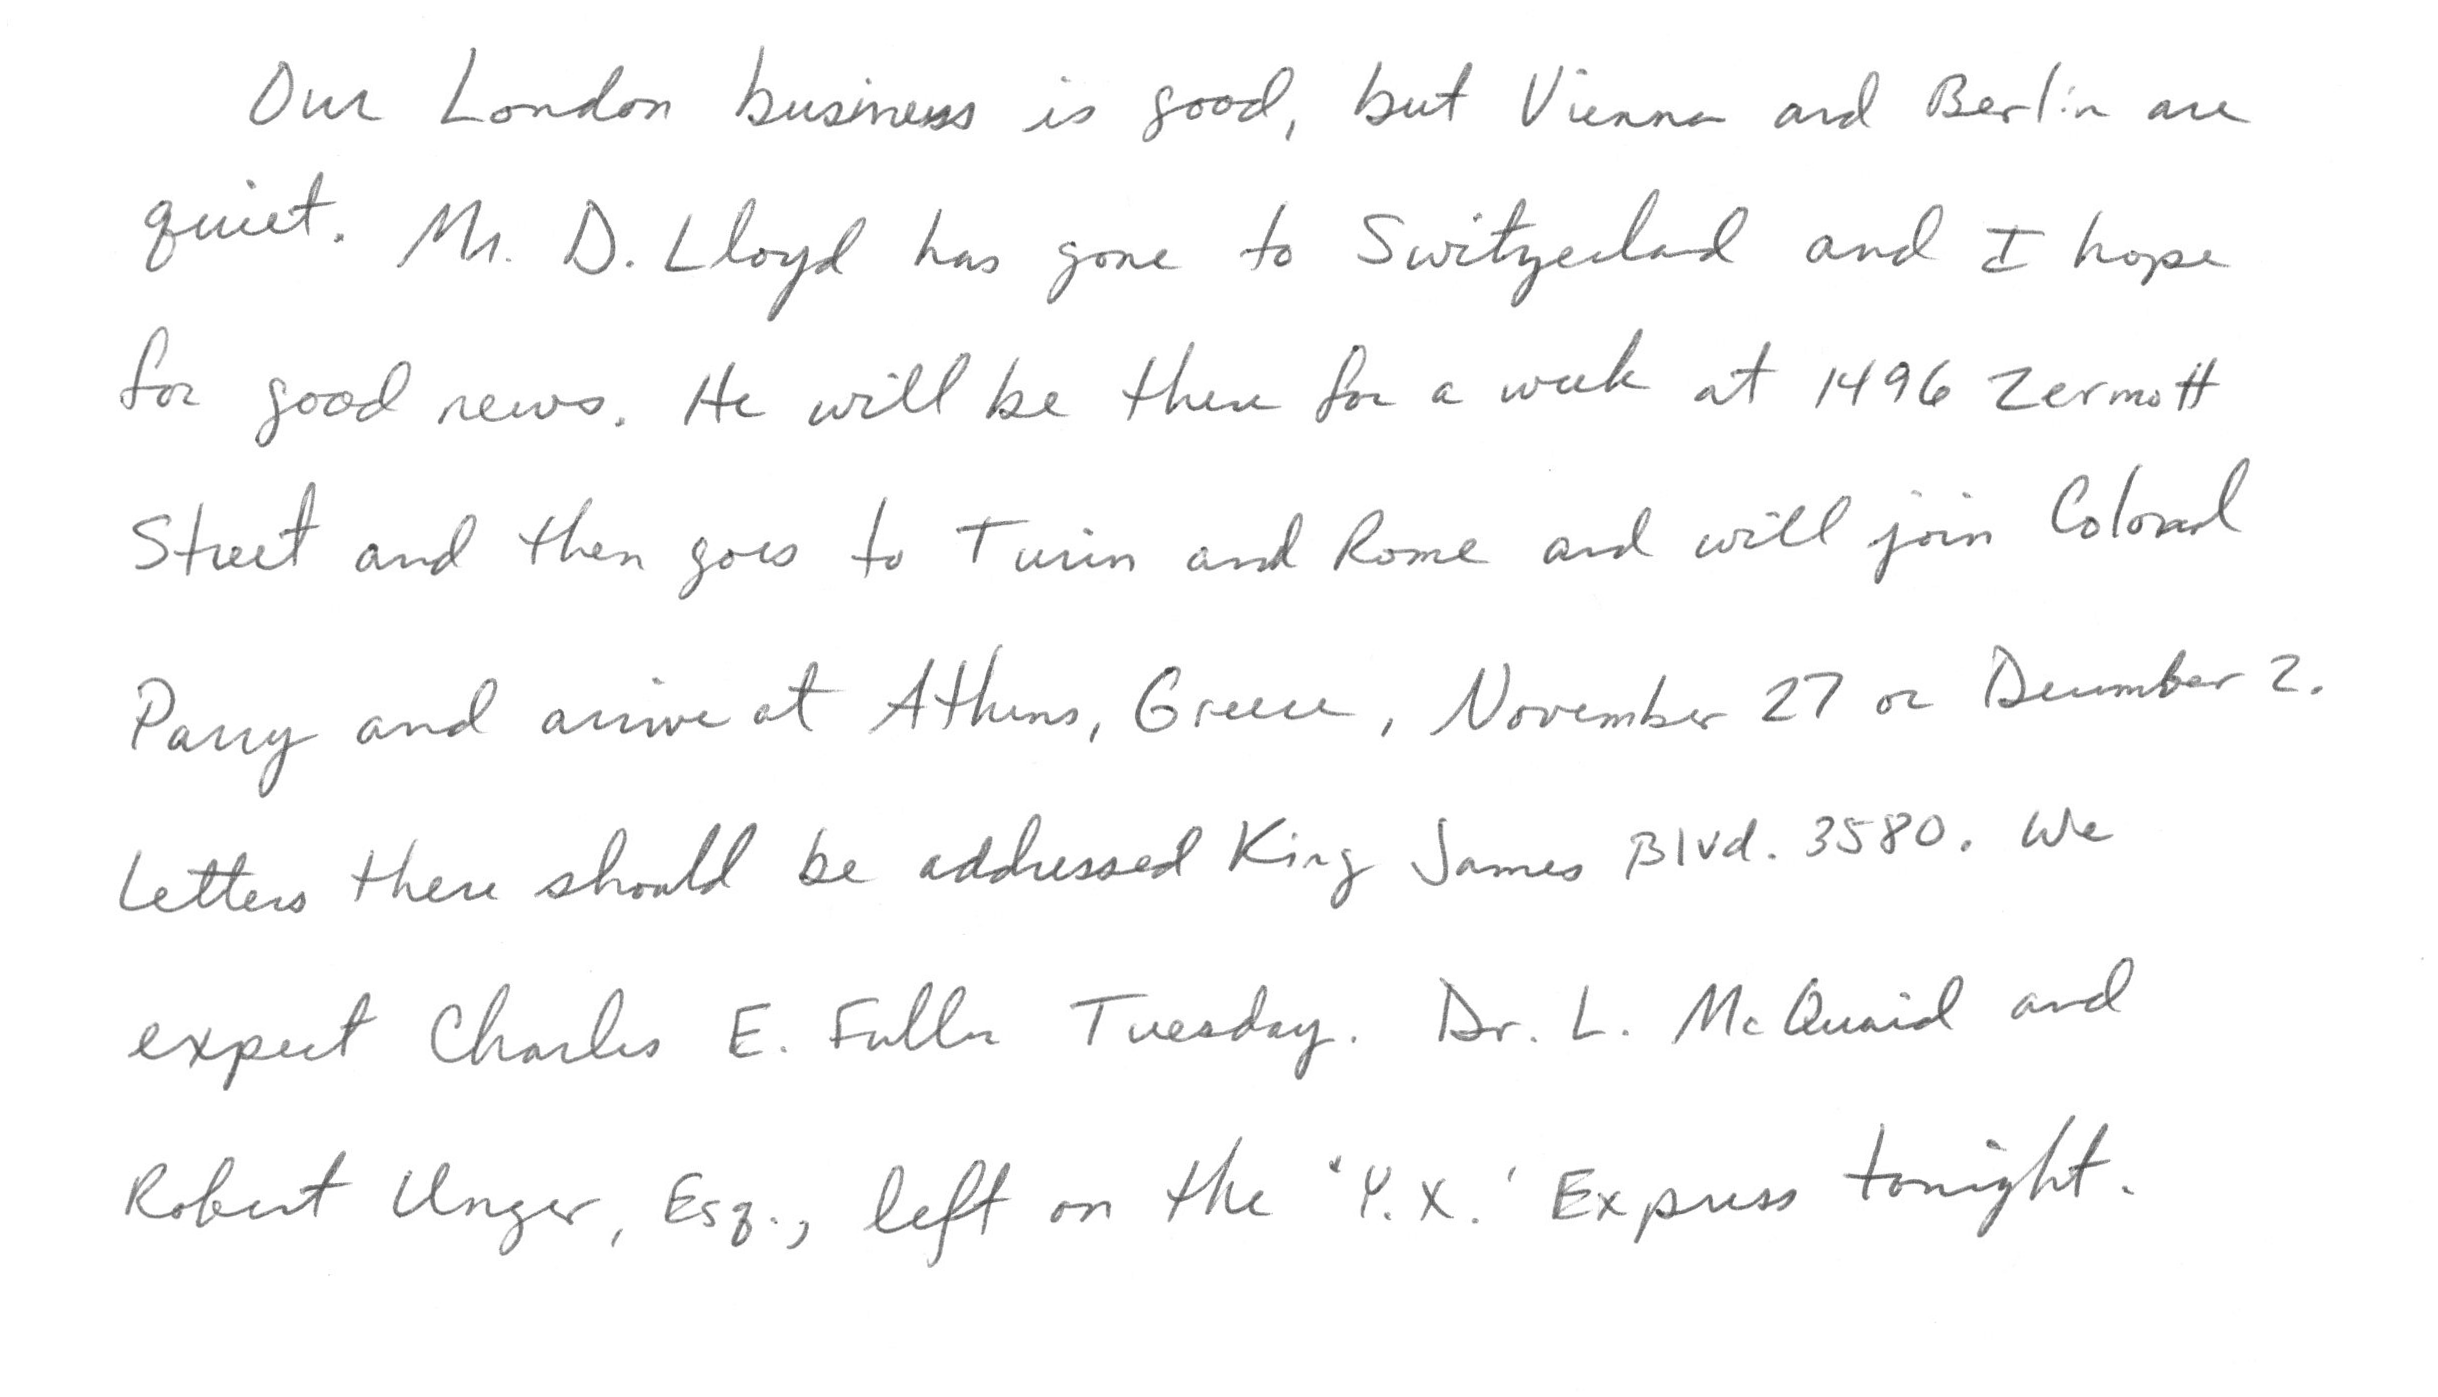 Our London business is good, but Vienna and Berlin are
quiet. Mr. D. Lloyd has gone to Switzerland and I hope
for good news. He will be there for a week at 1496 Zermott
Street and then goes to Turin and Rome and will join Colonel
Parry and arrive at Athens, Greece, November 27 or December 2.
Letters there should be addressed King James Blvd. 3580. We
expect Charles E. Fuller Tuesday. Dr. L. McQuaid and
Robert Unger, Esq., left on the 'Y.X.' Express tonight.